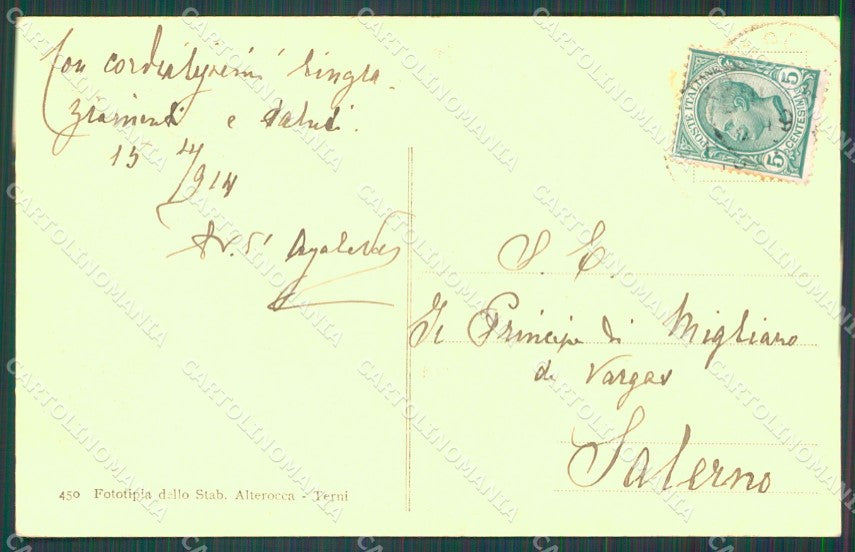 Con cordialissimi ringra-
ziamenti e saluti.
15 4/914
S. E.
Il Principe di Migliano
de Vargas
Salerno
POSTE ITALIANE
5 CENTESIMI 5
450 Fototipia dello Stab. Alterocca - Terni
CARTOLINOMANIA